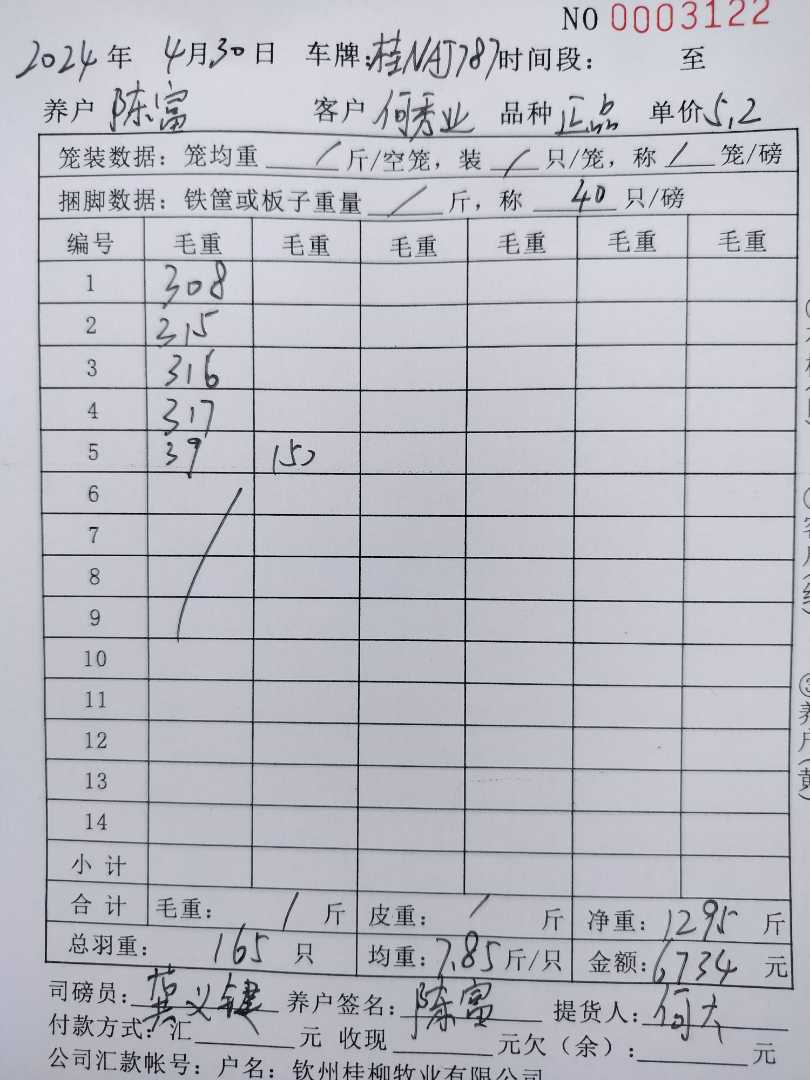 NO 0003122
2024年 4月30日 车牌:桂NAJ787 时间段: 至
养户 陈富 客户 何秀业 品种 正品 单价 5.2
笼装数据: 笼均重 / 斤/空笼, 装 / 只/笼, 称 / 笼/磅
捆脚数据: 铁筐或板子重量 / 斤, 称 40 只/磅
编号 毛重 毛重 毛重 毛重 毛重 毛重
1 308
2 315
3 316
4 317
5 39
6
7
8
9
10
11
12
13
14
小计
合计 毛重: / 斤 皮重: / 斤 净重: 1295 斤
总羽重: 165 只 均重: 7.85 斤/只 金额: 6734 元
司磅员: 养户签名: 陈富 提货人: 何大
付款方式: 汇 元 收现 元欠(余): 元
公司汇款帐号: 户名: 钦州桂柳牧业有限公司
养户(黄)